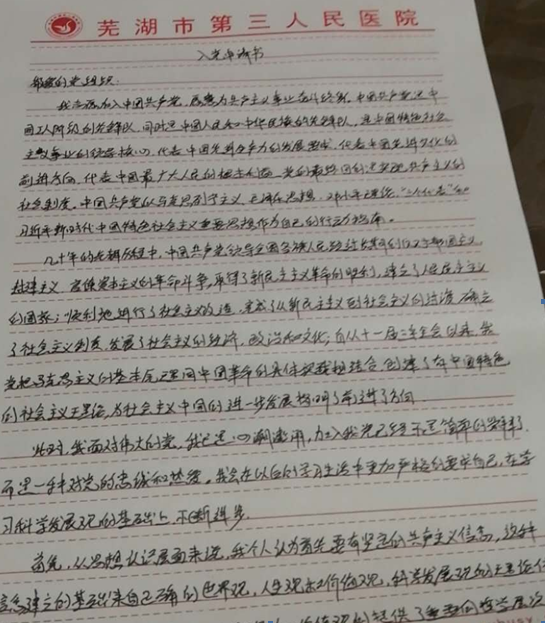 芜湖市第三人民医院
入党申请书
敬爱的党组织:
我志愿加入中国共产党,愿意为共产主义事业奋斗终身。中国共产党是中
国工人阶级的先锋队,同时是中国人民和中华民族的先锋队,是中国特色社会
主义事业的领导核心,代表中国先进生产力的发展要求,代表中国先进文化的
前进方向,代表中国最广大人民的根本利益。党的最终目的是实现共产主义的
社会制度。中国共产党以马克思列宁主义、毛泽东思想、邓小平理论、“三个代表”和
习近平新时代中国特色社会主义重要思想作为自己的行动指南。
几十年的光辉历程中,中国共产党领导全国各族人民经过长期的反对帝国主义、
封建主义、官僚资本主义的革命斗争,取得了新民主主义革命的胜利,建立了人民民主主义
的国家;顺利地进行了社会主义改造,完成了从新民主主义到社会主义的过渡,确立
了社会主义制度,发展了社会主义的经济、政治和文化;自从十一届三中全会以来,我
党把马克思主义的基本原理同中国革命的具体实践相结合,创建了有中国特色
的社会主义理论,为社会主义中国的进一步发展指明了前进方向。
此时,我面对伟大的党,我已是心潮澎湃,加入我党已经不是简单的
而是一种对党的忠诚和热爱。我会在以后的学习生活中更加严格的要求自己,在学
习科学发展观的基础上,不断进步。
首先,从思想认识层面来说,我个人认为首先要有坚定的共产主义信念,这种
信念建立的基础来自正确的世界观、人生观和价值观,科学发展观的理论
价值观的提供了重要的哲学